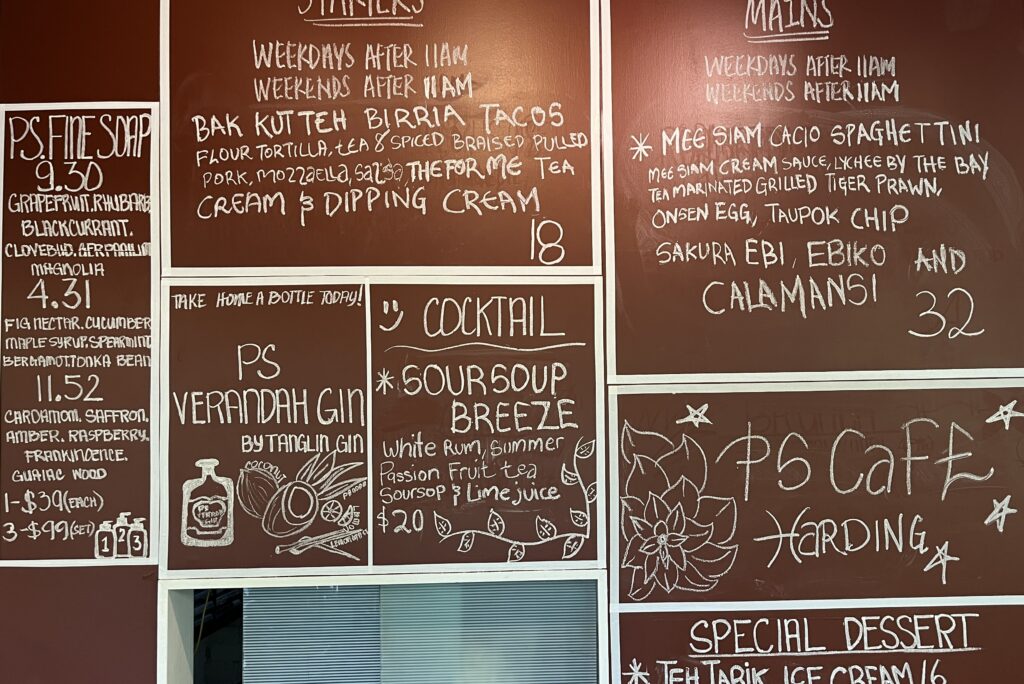 PS. FINE SOAP
9.30
GRAPEFRUIT. RHUBARB
BLACKCURRANT.
CLOVEBUD. GERPANIUM
MAGNOLIA
4.31
FIG NECTAR. CUCUMBER
MAPLE SYRUP. SPEARMINT
BERGAMOT. TONKA BEAN
11.52
CARDAMOM. SAFFRON.
AMBER. RASPBERRY.
FRANKINCENCE.
GUAIAC WOOD
1-$39(EACH)
3-$99(SET)
1 2 3
STARTERS
WEEKDAYS AFTER 11AM
WEEKENDS AFTER 11AM
BAK KUT TEH BIRRIA TACOS
FLOUR TORTILLA, TEA & SPICED BRAISED PULLED
PORK, MOZZAELLA, SALSA THE FOR ME TEA
CREAM & DIPPING CREAM
18
TAKE HOME A BOTTLE TODAY!
PS
VERANDAH GIN
BY TANGLIN GIN
COCONUT
PANDAN
PS
VERANDAH
GIN
COCKTAIL
* SOURSOUP
BREEZE
White Rum, Summer
Passion Fruit tea
Soursop & Lime juice
$20
MAINS
WEEKDAYS AFTER 11AM
WEEKENDS AFTER 11AM
* MEE SIAM CACIO SPAGHETTINI
MEE SIAM CREAM SAUCE, LYCHEE BY THE BAY
TEA MARINATED GRILLED TIGER PRAWN,
ONSEN EGG, TAUPOK CHIP
SAKURA EBI, EBIKO AND
CALAMANSI
32
PS CaFE
HARDING
SPECIAL DESSERT
* TEH TARIK ICE CREAM 16